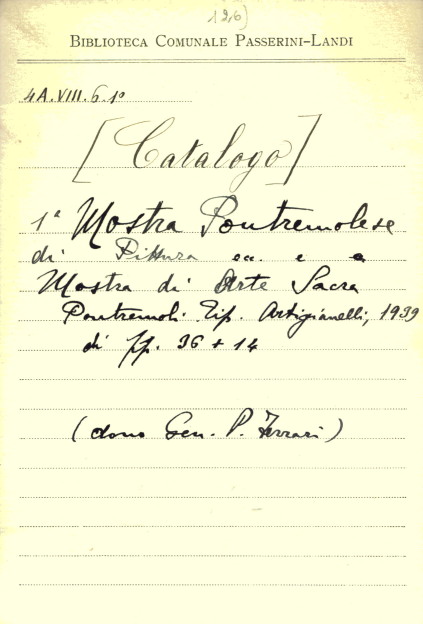 126)
BIBLIOTECA COMUNALE PASSERINI-LANDI
4A.VIII.6.1º
[Catalogo]
1ª Mostra Pontremolese
di Pittura ecc. e
Mostra di Arte Sacra
Pontremoli. Tip. Artigianelli, 1939
di pp. 36 + 14
(dono Gen. P. Ferrari)